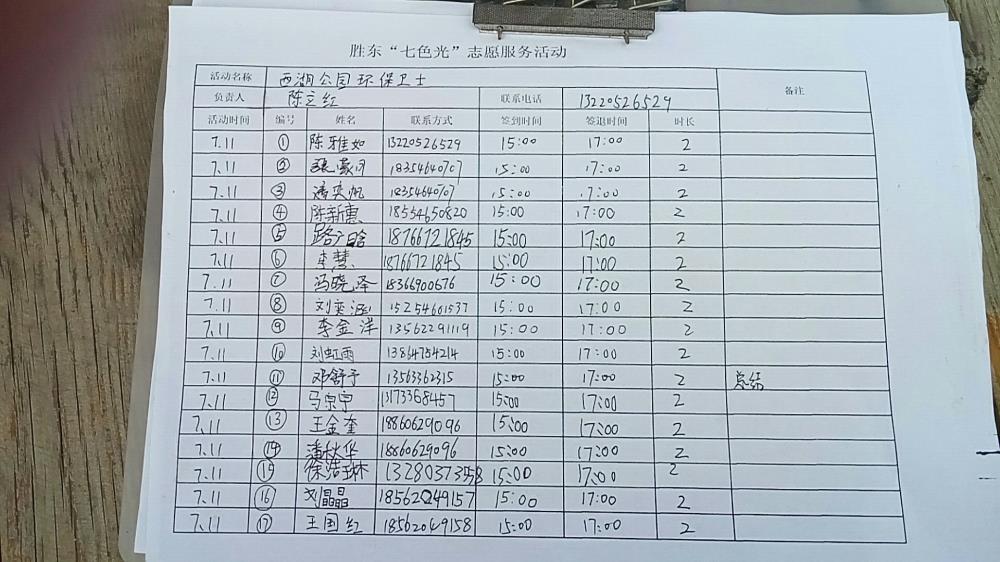 胜东“七色光”志愿服务活动
活动名称 西湖公园环保卫士 备注
负责人 陈立红 联系电话 13220526529
活动时间 编号 姓名 联系方式 签到时间 签退时间 时长
7.11 ① 陈雅如 13220526529 15:00 17:00 2
7.11 ② 18354640707 15:00 17:00 2
7.11 ③ 潘奕帆 18354640707 15:00 17:00 2
7.11 ④ 陈新惠 18554650820 15:00 17:00 2
7.11 ⑤ 路广晗 18766721845 15:00 17:00 2
7.11 ⑥ 李慧 18766721845 15:00 17:00 2
7.11 ⑦ 冯晓泽 15366900676 15:00 17:00 2
7.11 ⑧ 刘奕涵 15254601537 15:00 17:00 2
7.11 ⑨ 李金洋 13562291119 15:00 17:00 2
7.11 ⑩ 刘虹雨 13864754214 15:00 17:00 2
7.11 ⑪ 邓舒予 13563362315 15:00 17:00 2 总结
7.11 ⑫ 马宗宁 13173368457 15:00 17:00 2
7.11 ⑬ 王金奎 18860629096 15:00 17:00 2
7.11 ⑭ 潘秋华 18860629096 15:00 17:00 2
7.11 ⑮ 徐浩琳 13280373558 15:00 17:00 2
7.11 ⑯ 刘晶晶 18562049157 15:00 17:00 2
7.11 ⑰ 王国红 18562049158 15:00 17:00 2